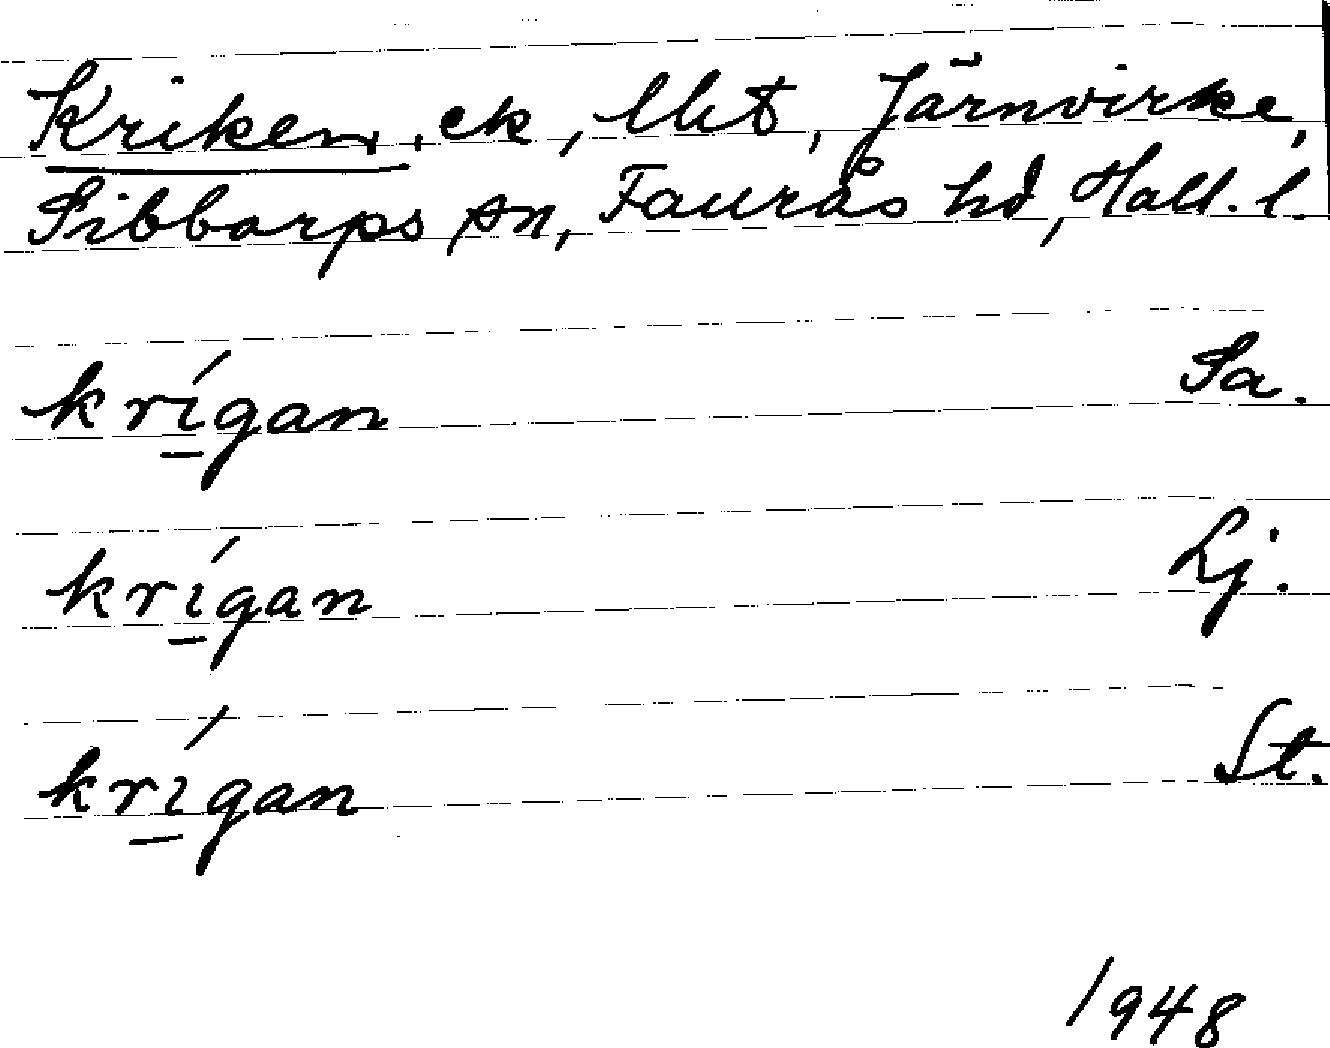 Kriken, ek, Ukt, Järnvirke,
Sibbarps sn, Faurås hd, Hall. l.
krígan Sa.
krígan Lj.
krígan St.
1948